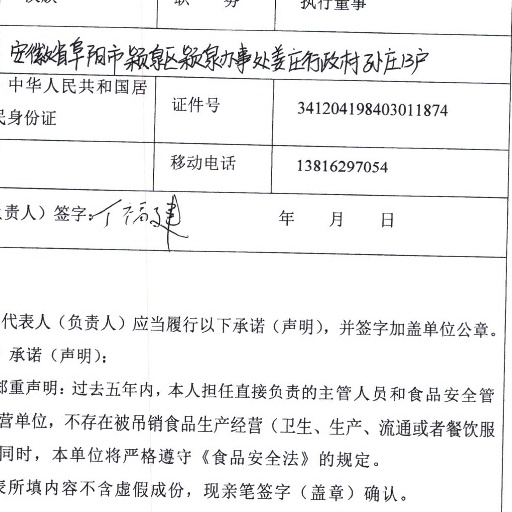 职 务 执行董事
安徽省阜阳市颍泉区颍泉办事处姜庄行政村孙庄13户
中华人民共和国居民身份证 证件号 341204198403011874
移动电话 13816297054
责人）签字： 年 月 日
代表人（负责人）应当履行以下承诺（声明），并签字加盖单位公章。
承诺（声明）：
郑重声明：过去五年内，本人担任直接负责的主管人员和食品安全管
营单位，不存在被吊销食品生产经营（卫生、生产、流通或者餐饮服
同时，本单位将严格遵守《食品安全法》的规定。
表所填内容不含虚假成份，现亲笔签字（盖章）确认。